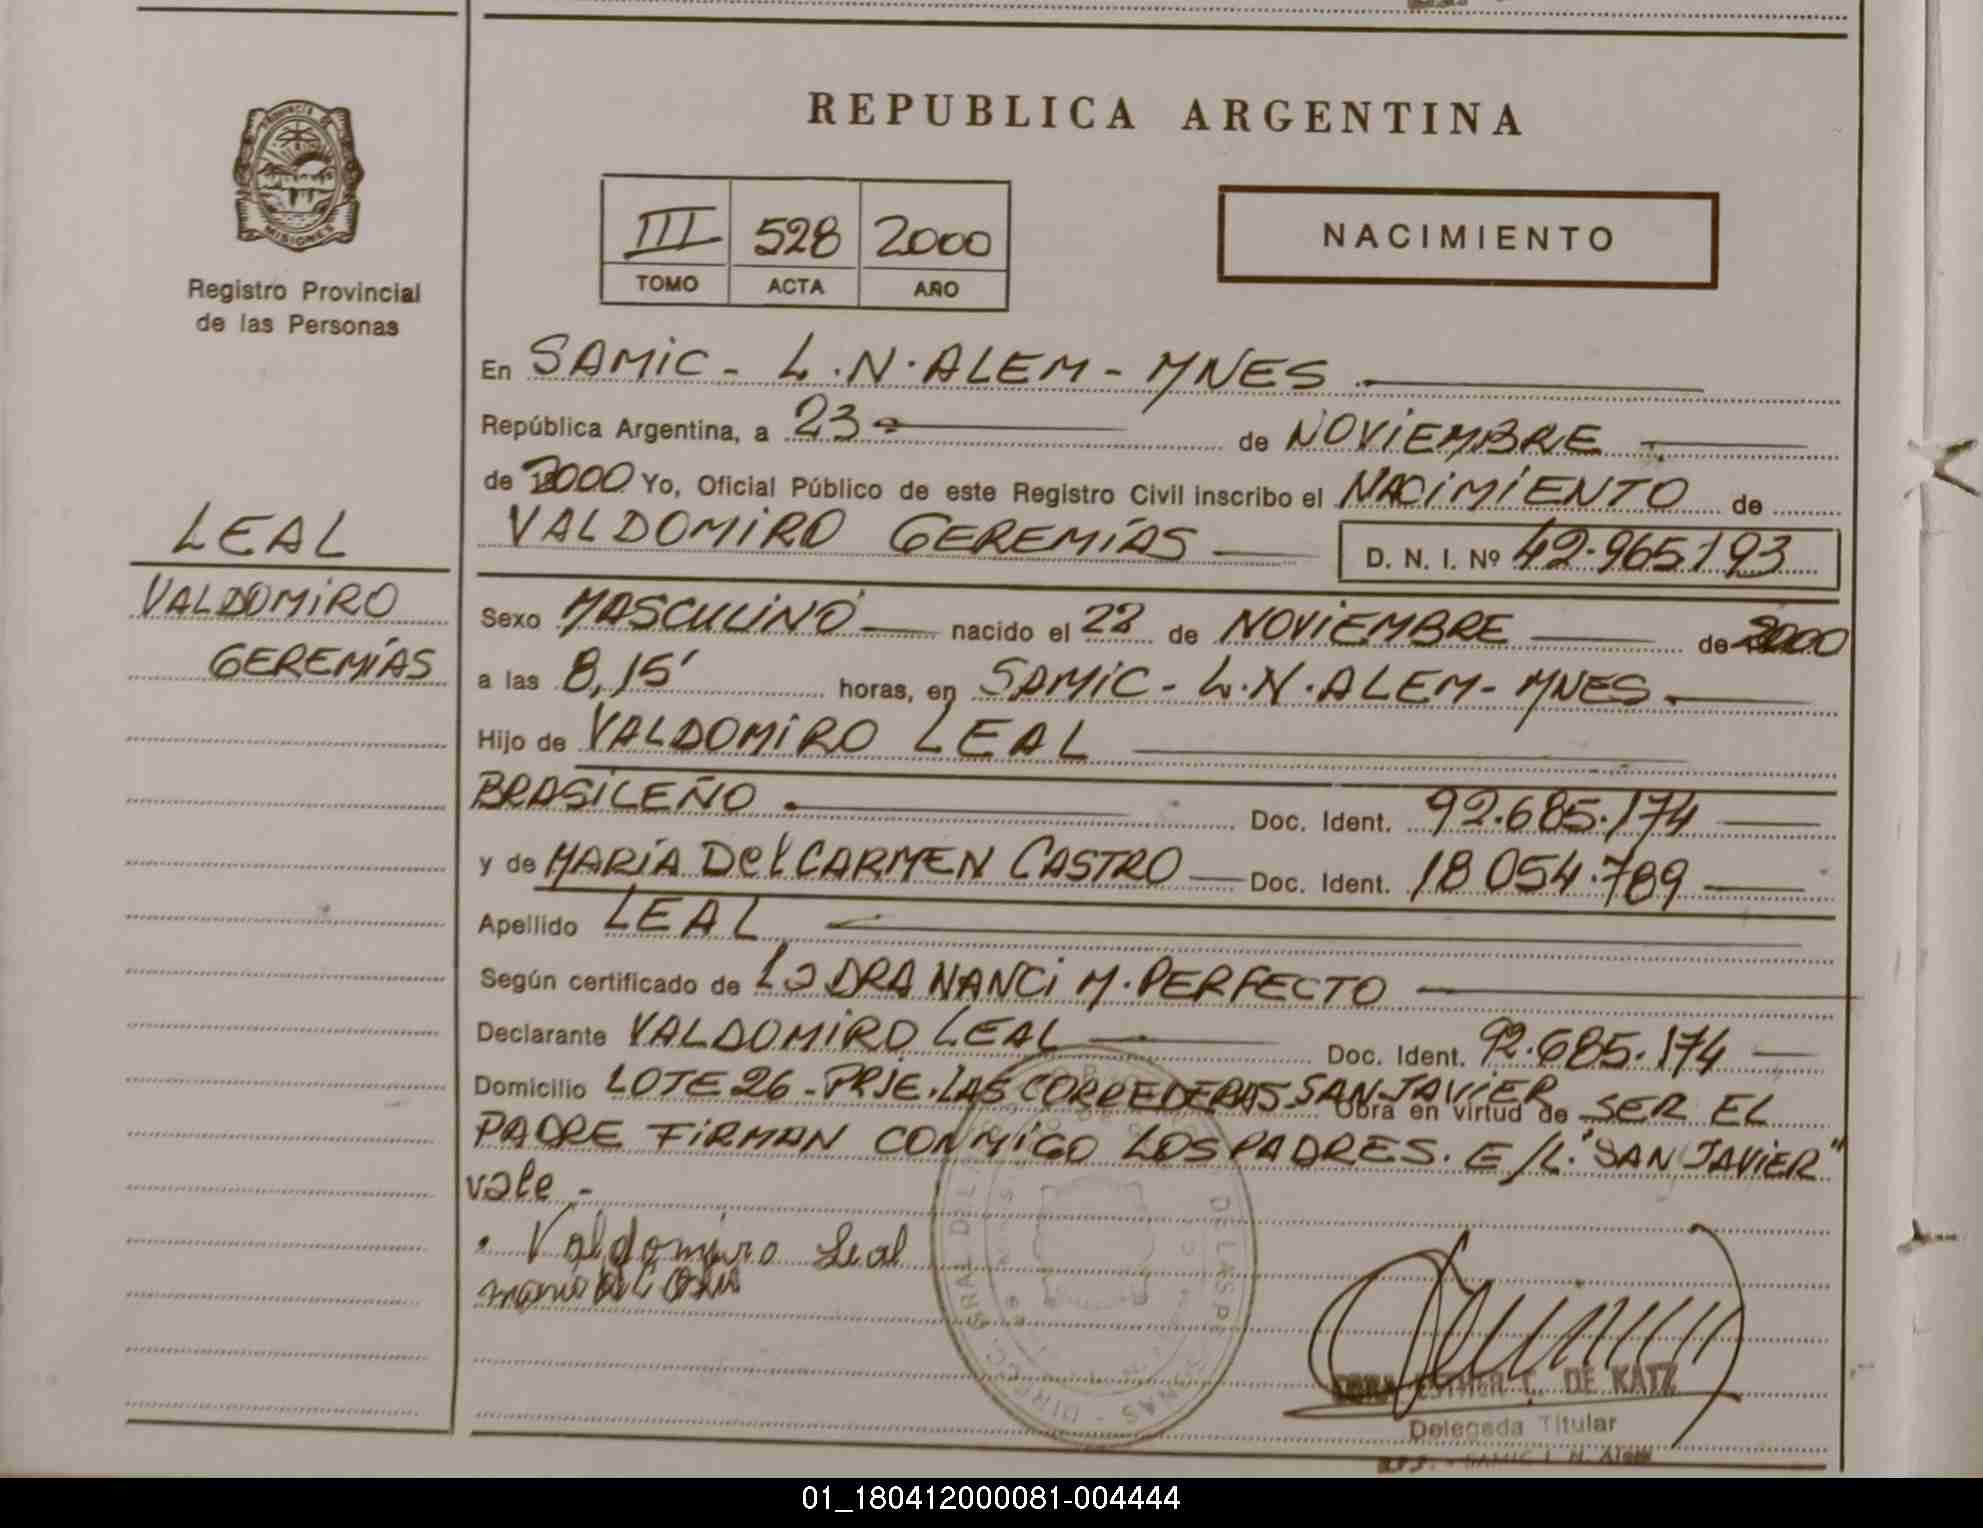 REPUBLICA ARGENTINA
PROVINCIA DE
MISIONES
Registro Provincial
de las Personas
III 528 2000
TOMO ACTA AÑO
NACIMIENTO
En SAMIC - L.N. ALEM - MNES.
República Argentina, a 23 de NOVIEMBRE
de 2000 Yo, Oficial Público de este Registro Civil inscribo el NACIMIENTO de
VALDOMIRO GEREMÍAS D. N. I. Nº 42.965.193
LEAL
VALDOMIRO
GEREMÍAS
Sexo MASCULINO nacido el 22 de NOVIEMBRE de 2000
a las 8,15' horas, en SAMIC - L.N. ALEM - MNES.
Hijo de VALDOMIRO LEAL
BRASILEÑO. Doc. Ident. 92.685.174
y de MARÍA DEL CARMEN CASTRO Doc. Ident. 18.054.789
Apellido LEAL
Según certificado de La DRA NANCI M. PERFECTO
Declarante VALDOMIRO LEAL Doc. Ident. 92.685.174
Domicilio LOTE 26 - PRJE. LAS CORREDERAS SAN JAVIER Obra en virtud de SER EL
PADRE FIRMAN CONMIGO LOS PADRES. E/L. "SAN JAVIER"
vale -
Valdomiro Leal
ESTHER C. DE KATZ
Delegada Titular
SAMIC L. N. Alem
01_180412000081-004444